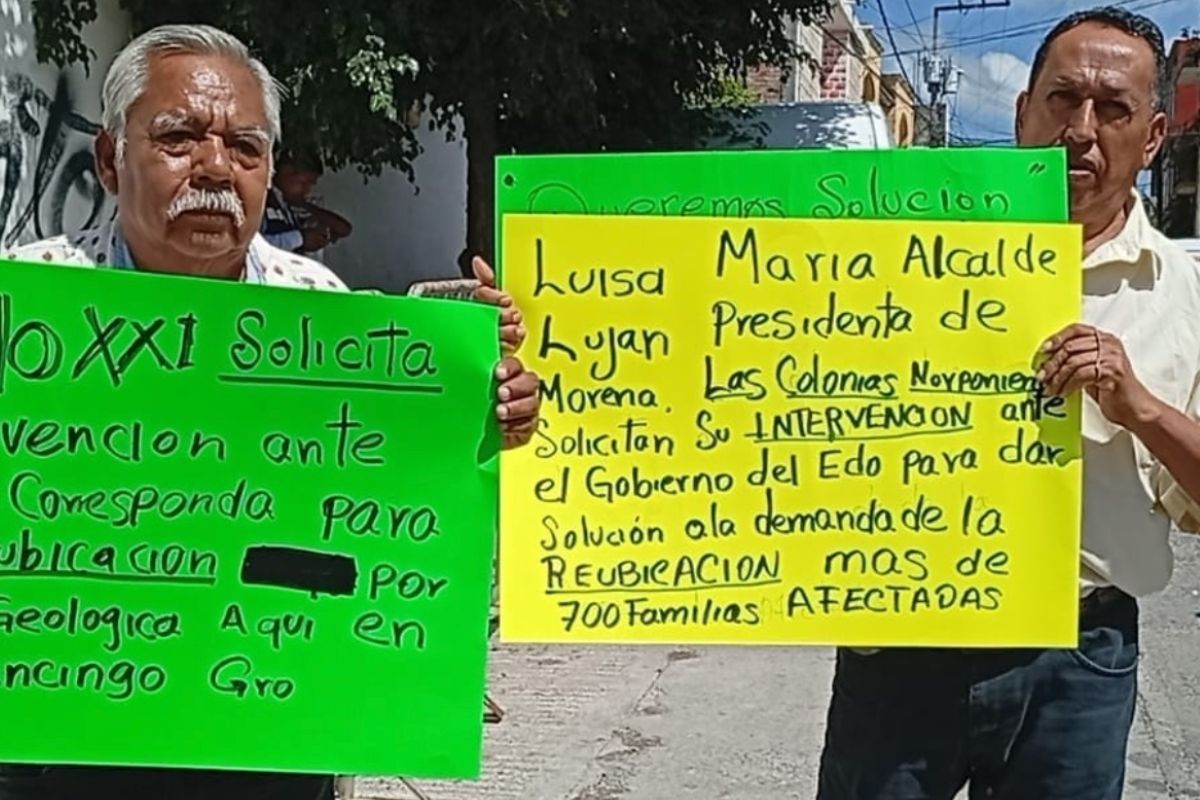 lo XXI Solicita
vencion ante
Corresponda para
ubicacion por
Geologica Aqui en
ncingo Gro
Queremos Solucion"
Luisa Maria Alcalde
Lujan Presidenta de
Morena. Las Colonias Norponien
Solicitan Su INTERVENCION ante
el Gobierno del Edo para dar
Solución ala demanda de la
REUBICACION mas de
700 Familias AFECTADAS